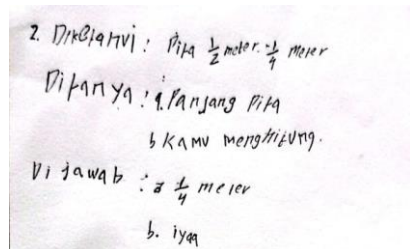 2. Diketahui : Pita 1/2 meter. - 1/4 meter
Ditanya : a. Panjang Pita
b Kamu menghitung.
Di jawab : a 1/4 meter
b. iyaa